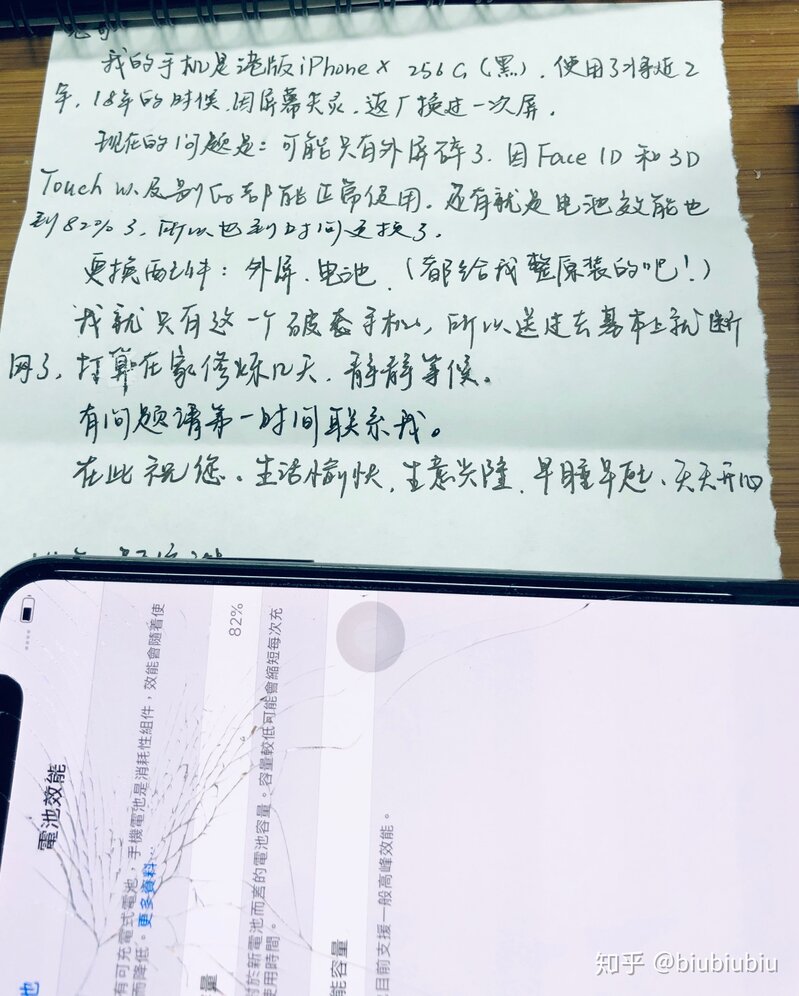 我的手机是港版iPhone X 256G(黑),使用了将近2
年,18年的时候,因屏幕失灵,返厂换过一次屏.
现在的问题是:可能只有外屏碎了.因Face ID和3D
Touch以及别的都能正常使用.还有就是电池效能也
到82%了,所以也到时间更换了.
更换两件:外屏、电池.(都给我整原装的吧!)
我就只有这一个破卷手机,所以送过去基本上就断
网了,打算在家修炼几天,静静等候。
有问题请第一时间联系我。
在此祝您、生活愉快,生意兴隆,早睡早起、天天开心
電池效能
有可充電式電池,手機電池是消耗性組件,效能會隨着使
而降低。更多資料⋯
量
82%
對於新電池而言的電池容量。容量較低可能會縮短每次充
使用時間。
能容量
目前支援一般高峰效能。
池
知乎 @biubiubiu